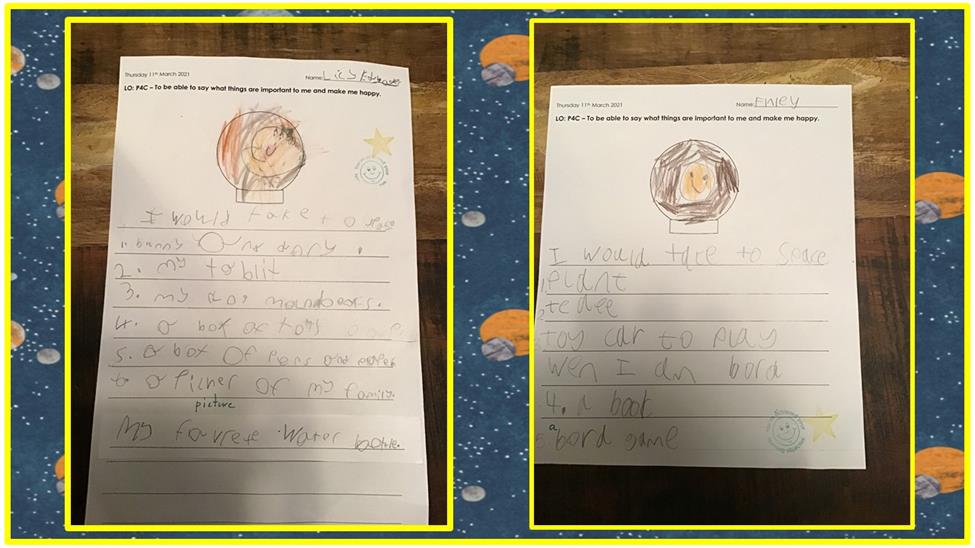 Thursday 11th March 2021
Name:
LO: P4C – To be able to say what things are important to me and make me happy.
I would take to space
1. bunny
2. my toblit
3. my
4. a box of toys
5. a box of pens and
to a Picher of my family.
picture
My favrete Water bottle.
Thursday 11th March 2021
Name: Finley
LO: P4C – To be able to say what things are important to me and make me happy.
I would take to space
1. Plant
2. tedee
toy car to play
wen I am bord
4. a book
a
5. bord game